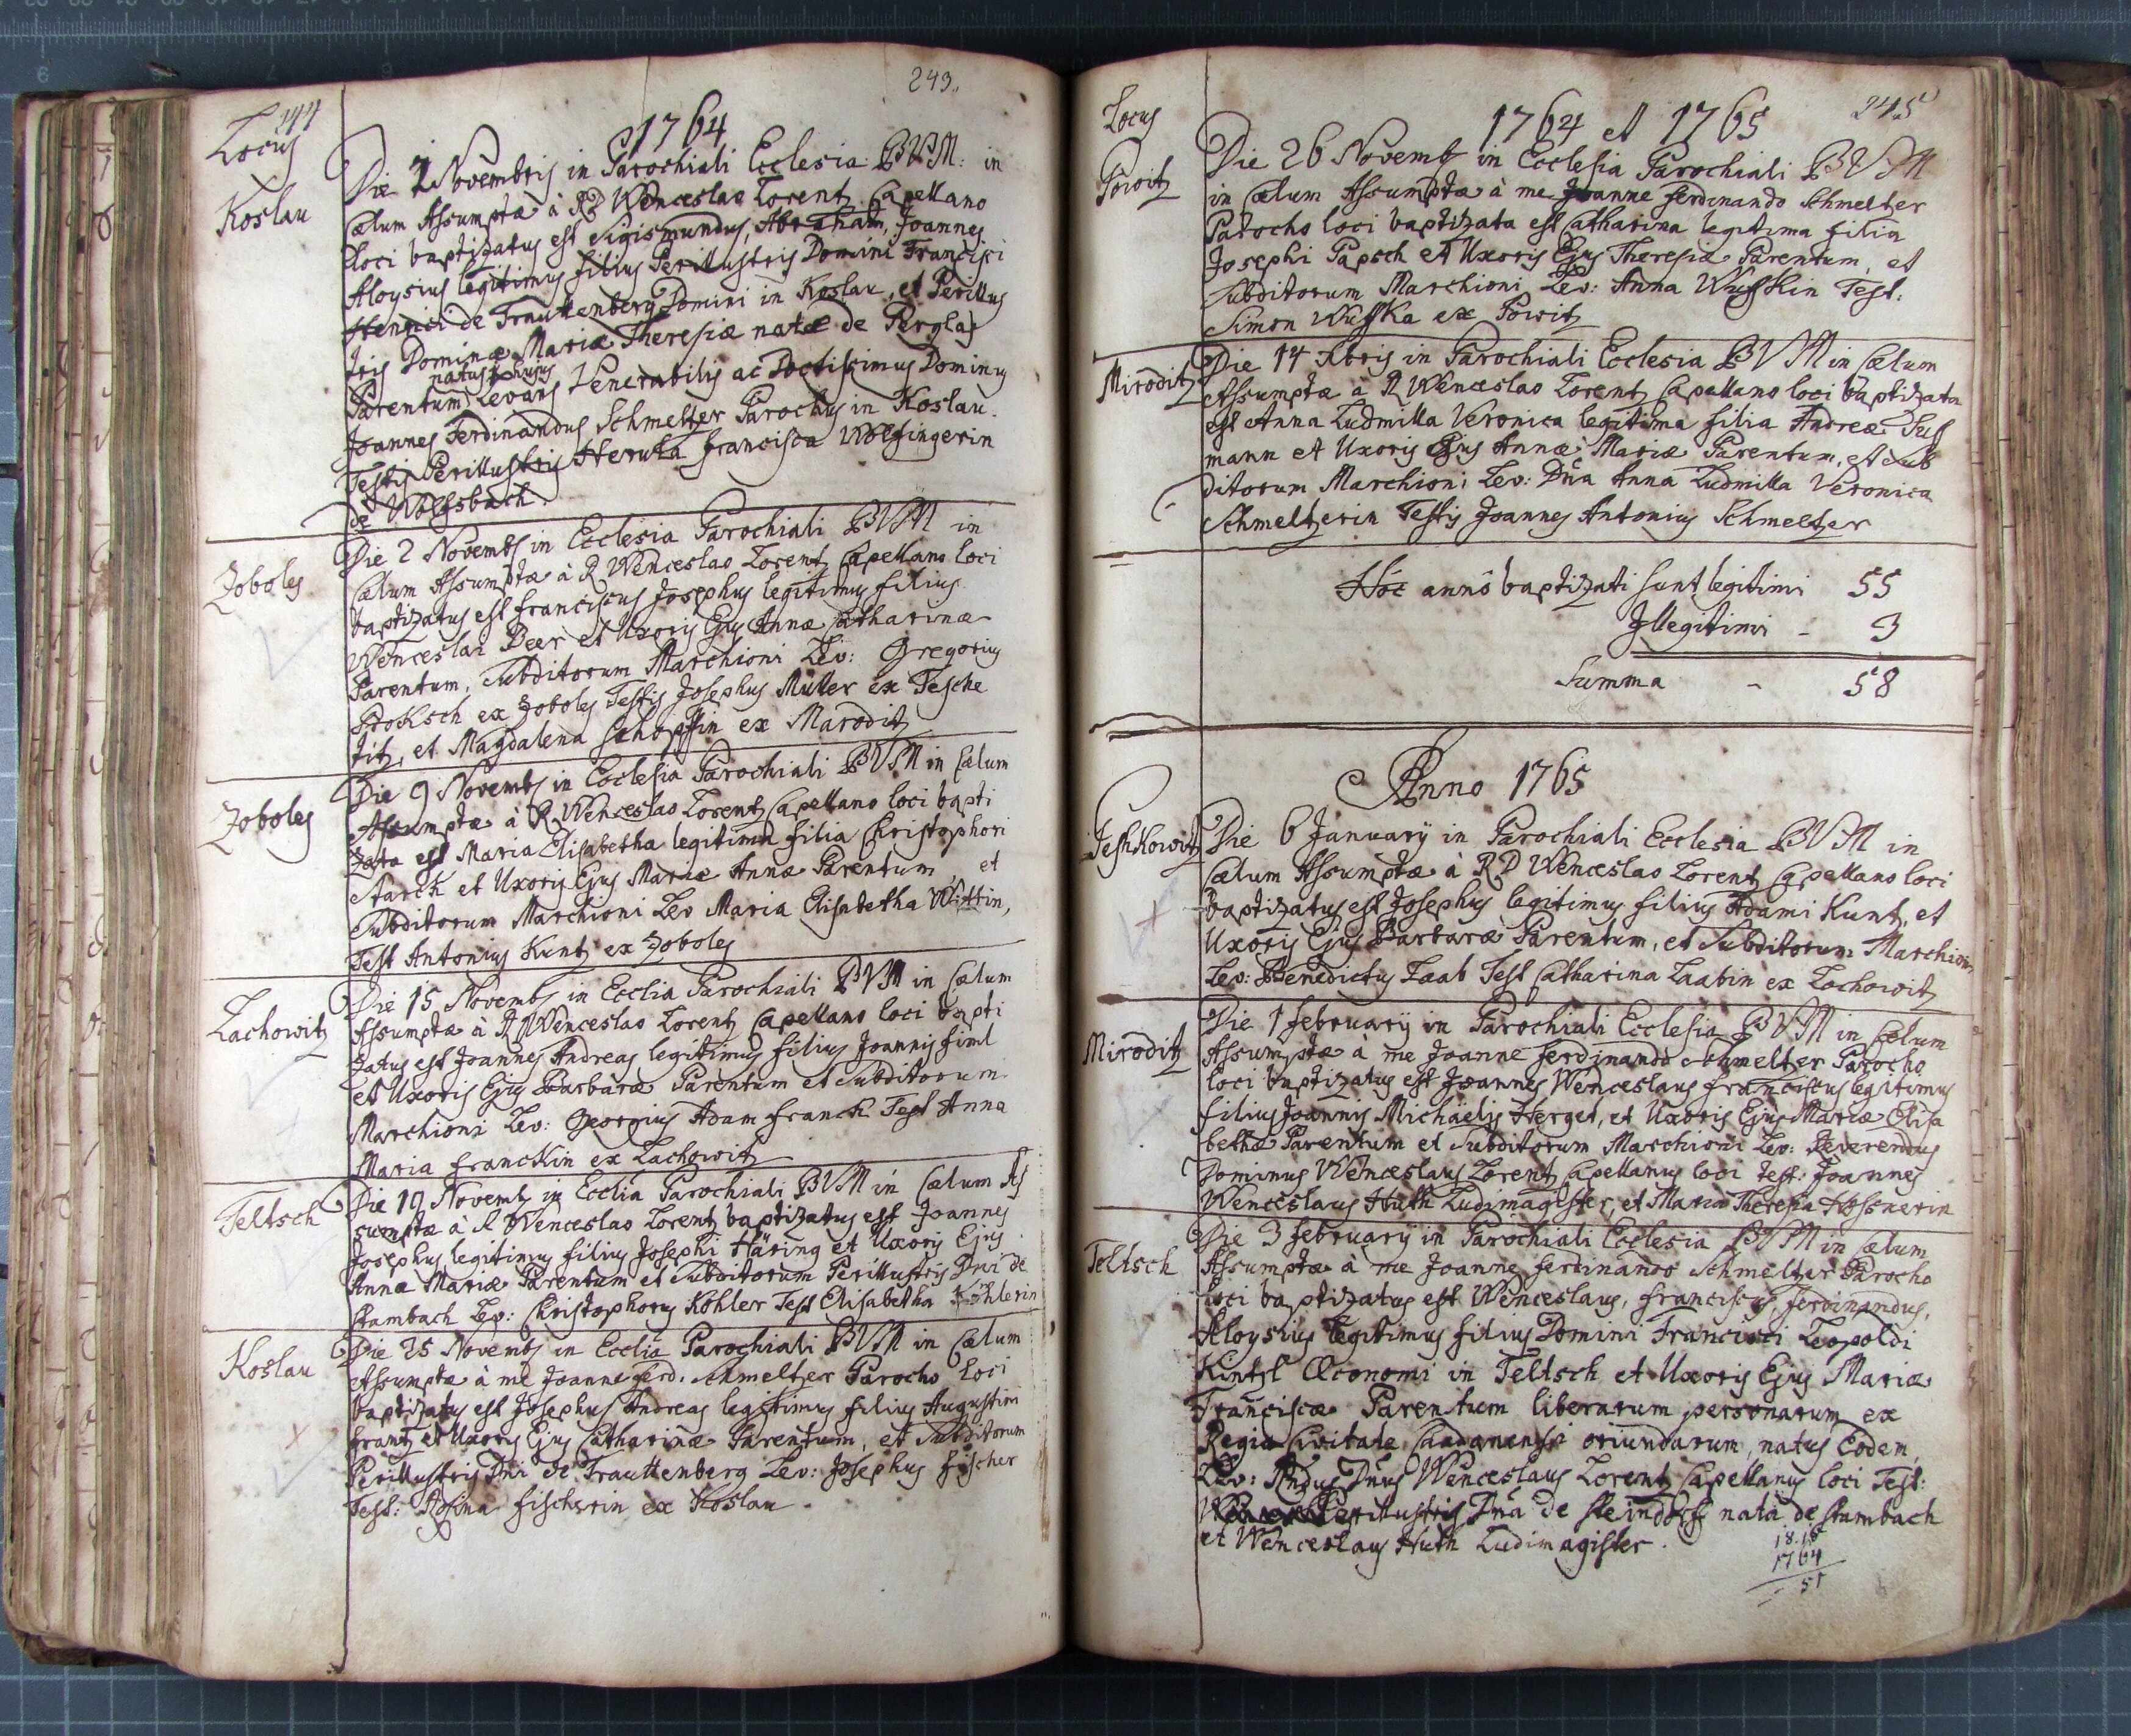 243.
144
1764
Locus
Koslau
Die 2 Novembris in Parochiali Ecclesia BVM: in
Cælum Assumptæ à RD Wenceslao Lorentz Capellano
loci baptizatus est Sigismundus, Abraham, Joannes
Aloysius legitimus filius Perillustris Domini Francisci
Henrici de Trauttenberg Domini in Koslau, et Perillus
tris Dominæ Mariæ Theresiæ natæ de Perglas
Parentum natus Levans Venerabilis ac Doctissimus Dominus
Joannes Ferdinandus Schmeltzer Parochus in Koslau.
Testis Perillustris Francisca Wolfingerin
de Wolfsbach.
Zoboles
Die 2 Novembs in Ecclesia Parochiali BVM in
Cælum Assumptæ à R Wenceslao Lorentz Capellano loci
baptizatus est Franciscus Josephus legitimus filius
Wenceslai Beer et Uxoris Ejus Annæ Catharinæ
Parentum, Subditorum Marchioni Lev: Gregorius
Proksch ex Zoboles Testis Josephus Müller ex Tesche
titz, et Magdalena Schopffin ex Maroditz
Zoboles
Die 9 Novembs in Ecclesia Parochiali BVM in Cælum
Assumptæ à R Wenceslao Lorentz Capellano loci bapti
zata est Maria Elisabetha legitima filia Christophori
Starck et Uxoris Ejus Mariæ Annæ Parentum, et
Subditorum Marchioni Lev Maria Elisabetha
Test Antonius Kuntz ex Zoboles
Lachowitz
Die 15 Novembs in Ecclia Parochiali BVM in Cælum
Assumptæ à R Wenceslao Lorentz Capellano loci bapti
zatus est Joannes Andreas legitimus filius Joannis Fiml
et Uxoris Ejus Barbaræ Parentum et Subditorum
Marchioni Lev: Georgius Adam Franck Test Anna
Maria Franckin ex Lachowitz
Teltsch
Die 19 Novembs in Ecclia Parochiali BVM in Cælum As
sumptæ à R Wenceslao Lorentz baptizatus est Joannes
Josephus legitimus filius Josephi Häring et Uxoris Ejus
Annæ Mariæ Parentum et Subditorum Perillustris Dni de
Stambach Lev: Christophorus Köhler Test Elisabetha Köhlerin
Koslau
Die 25 Novembs in Ecclia Parochiali BVM in Cælum
Assumptæ à me Joanne Ferd. Schmeltzer Parocho loci
baptizatus est Josephus Andreas legitimus filius Augustini
Frantz et Uxoris Ejus Catharinæ Parentum, et Subditorum
Perillustris Dni de Trauttenberg Lev: Josephus Fischer
Test: Rosina Fischerin ex Koslau.
245
1764 et 1765
Locus
Powitz
Die 26 Novemb in Ecclesia Parochiali BVM
in Cælum Assumptæ à me Joanne Ferdinando Schmeltzer
Parocho loci baptizata est Catharina legitima filia
Josephi Papsch et Uxoris Ejus Theresiæ Parentum, et
Subditorum Marchioni Lev: Anna Wusskin Test:
Simon Wusska ex Powitz
Miroditz
Die 14 Xbris in Parochiali Ecclesia BVM in Cælum
Assumptæ à R Wenceslao Lorentz Capellano loci baptizata
est Anna Ludmilla Veronica legitima filia Andreæ Sus
mann et Uxoris Ejus Annæ Mariæ Parentum, et Sub
ditorum Marchioni Lev: Dña Anna Ludmilla Veronica
Schmeltzerin Testis Joannes Antonius Schmeltzer
Hoc annô baptizati sunt legitimi 55
Illegitimi - 3
Summa - 58
Anno 1765
Teshkowitz
Die 6 Januarÿ in Parochiali Ecclesia BVM in
Cælum Assumptæ à RD Wenceslao Lorentz Capellano loci
baptizatus est Josephus legitimus filius Adami Kuntz, et
Uxoris Ejus Barbaræ Parentum, et Subditorum Marchioni
Lev: Benedictus Laab Test Catharina Laabin ex Lachowitz
Miroditz
Die 1 Februarÿ in Parochiali Ecclesia BVM in Cælum
Assumptæ à me Joanne Ferdinando Schmeltzer Parocho
loci baptizatus est Joannes Wenceslaus Franciscus legitimus
filius Joannis Michaelis Herget, et Uxoris Ejus Mariæ Elisa
bethæ Parentum et Subditorum Marchioni Lev: Reverendus
Dominus Wenceslaus Lorentz Capellanus loci Test: Joannes
Wenceslaus Huth Ludimagister, et Maria Theresia
Teltsch
Die 3 Februarÿ in Parochiali Ecclesia BVM in Cælum
Assumptæ à me Joanne Ferdinando Schmeltzer Parocho
loci baptizatus est Wenceslaus, Franciscus, Ferdinandus,
Aloysius legitimus filius Domini Francisci Leopoldi
Kintzl Œconomi in Teltsch et Uxoris Ejus Mariæ
Franciscæ Parentum liberarum personarum ex
Regia Civitate Caadanensi oriundarum, natus Eodem,
Lev: Rndus Dnus Wenceslaus Lorentz Capellanus loci Test:
Perillustris Dña de Steindorff nata de Stambach
et Wenceslaus Huth Ludimagister.
18.15
1764
51